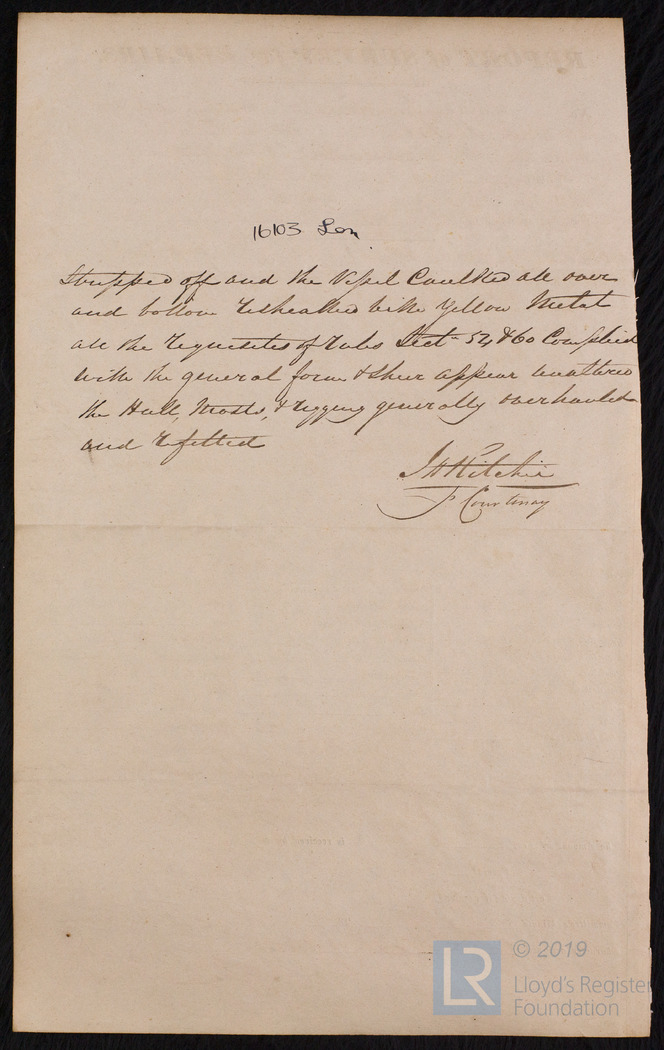 16103 Lon
Stripped off and the Vessel Caulked all over
and bottom resheathed with Yellow Metal
all the requisites of Rules Sect. 54 & 60 Complied
with the general form & sheer appear unaltered
the Hull, Masts, & rigging generally overhauled
and refitted
J H Ritchie
F Courtenay
© 2019
LR
Lloyd's Register
Foundation